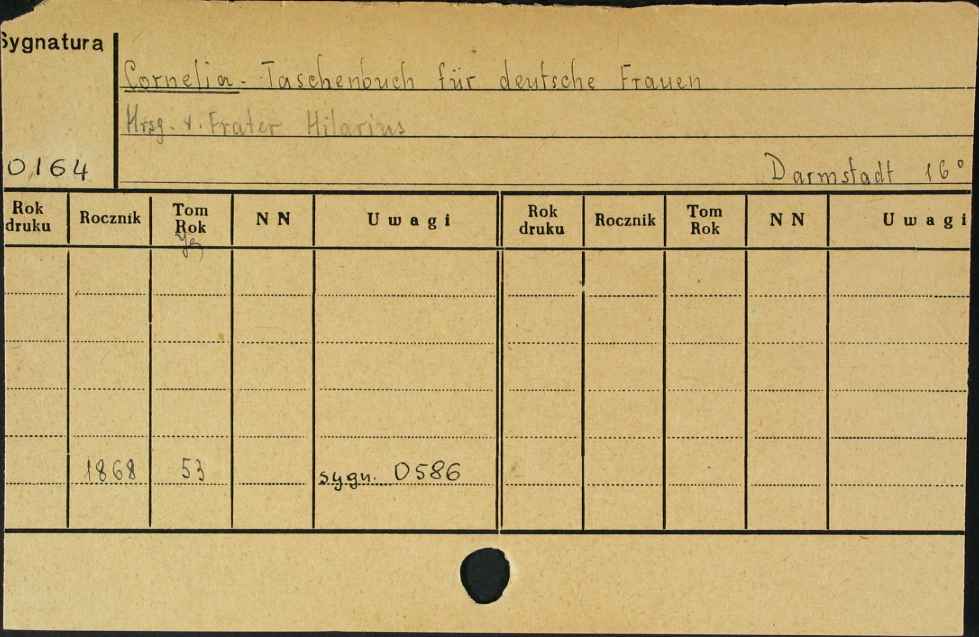 Sygnatura
Cornelia - Taschenbuch für deutsche Frauen
Hrsg. v. Frater Hilarius
0164
Darmstadt 16°
Rok druku Rocznik Tom Rok N N Uwagi Rok druku Rocznik Tom Rok N N Uwagi
1868 53 sygn. 0586